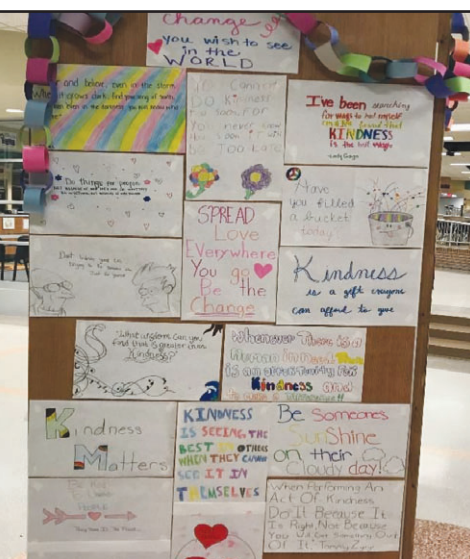 Change
you wish to see
in the
WORLD
and believe, even in the storm
You Cannot
Do Kindness
Too Soon For
You never know
how soon it will
be Too Late
I've been searching
for ways to heal myself
and I've found that
KINDNESS
is the best way.
-Lady Gaga
Do things for people
Have
you filled
a bucket
today?
SPREAD
Love
Everywhere
You go
Be the
Change
Kindness
is a gift everyone
can afford to give
"What wisdom can you
find that is greater than
Kindness?"
Whenever There is a
Human in Need, There
is an opportunity for
Kindness and
Kindness
Matters
KINDNESS
IS SEEING THE
BEST IN OTHERS
WHEN THEY CANNOT
SEE IT IN
THEMSELVES
Be Someones
SunShine
on their
Cloudy day!
Be
PEOPLE
When Performing An
Act Of Kindness
Do It Because It
Is Right, Not Because
You Will Get Something Out
Of It.